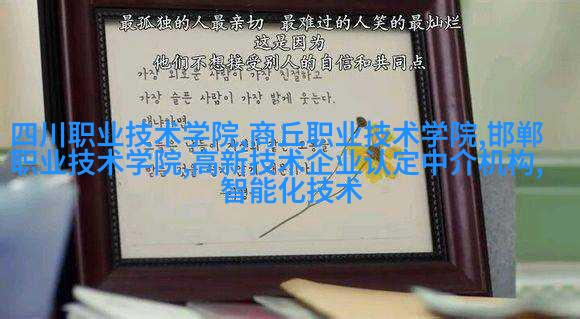 最孤独的人最亲切 最难过的人笑的最灿烂
这是因为
他们不想接受别人的自信和共同点
가장 외로운 사람이 가장 친절하고
가장 슬픈 사람이 가장 밝게 웃는다.
왜냐하면,
四川职业技术学院,商丘职业技术学院,邯郸
职业技术学院,高新技术企业认定中介机构,
智能化技术